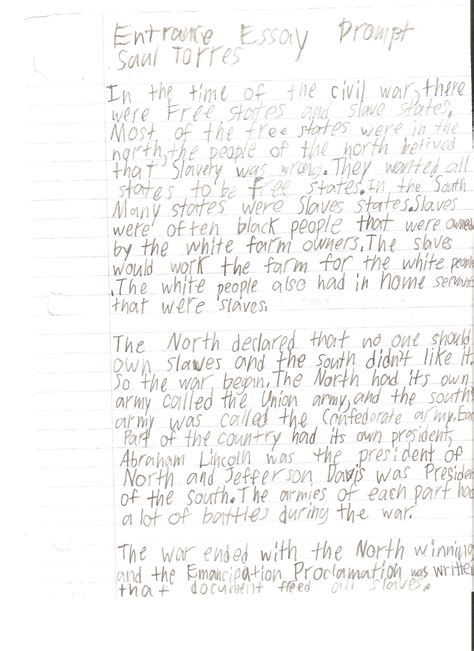 Entrance Essay Prompt
Saul Torres
In the time of the civil war, there
were Free states and slave states.
Most of the free states were in the
north, the people of the north belived
that Slavery was wrong. They wanted all
states to be free states. In the South
Many states were Slaves states. Slaves
were often black people that were owned
by the white farm owners. The slaves
would work the farm for the white people
. The white people also had in home servants
that were slaves.
The North declared that no one should
own slaves and the south didn't like it.
So the war began. The North had its own
army called the Union army, and the south
army was called the Confederate army. Each
Part of the country had its own president,
Abraham Lincoln was the president of
North and Jefferson Davis was President
of the south. The armies of each part had
a lot of battles during the war.
The war ended with the North winning
and the Emancipation Proclamation was written
that document freed all slaves.